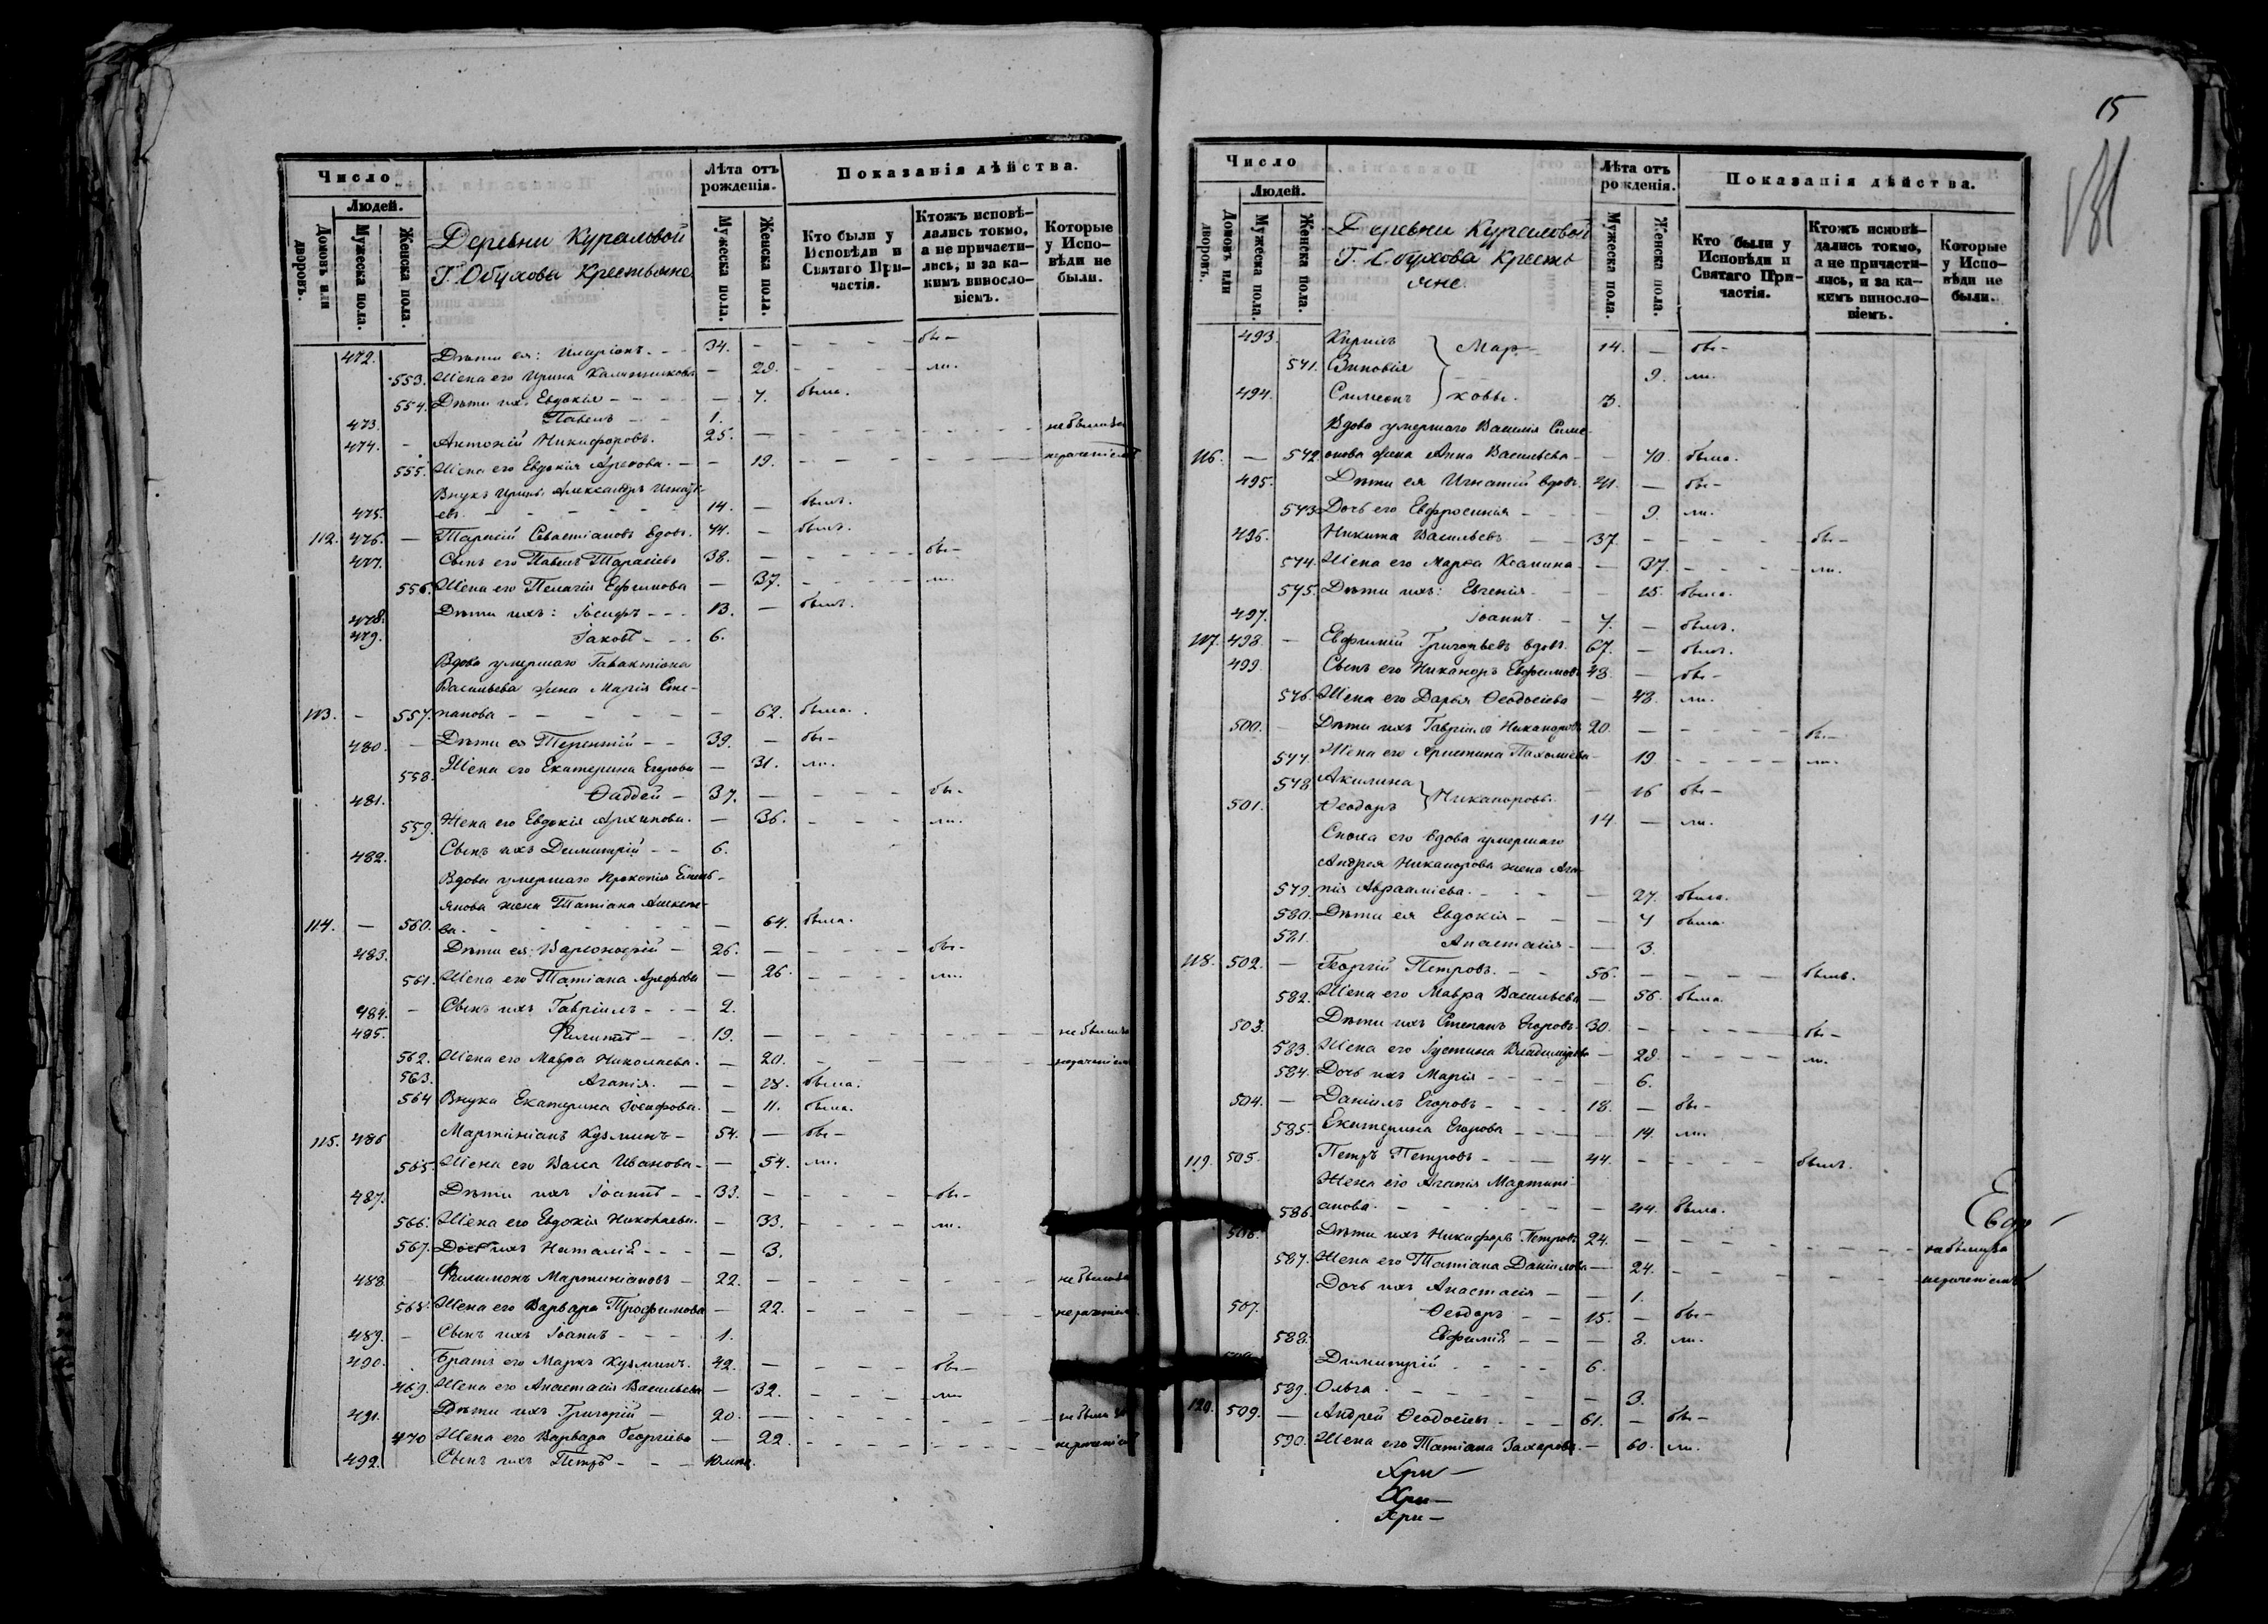 Число
Людей.
Домовъ или дворовъ.
Мужеска пола.
Женска пола.
Деревни Кураловой
Г. Обухова Крестьяне
Лѣта отъ рожденія.
Мужеска пола.
Женска пола.
Показанія дѣйства.
Кто были у Исповѣди и Святаго Причастія.
Ктожъ исповѣдались токмо, а не причастились, и за какимъ винословіемъ.
Которые у Исповѣди не были.
472. Дѣти ея: Иларіонъ. 34. бы-
553. Жена его Ирина 29. ли.
554. Дѣти ихъ: Евдокія 7. была.
473. Павелъ 1.
474. Антоній Никифоровъ. 25. не были за
555. Жена его Евдокія 19. нерачениемъ
Внукъ Ирины Александръ
475. евъ. 14. былъ.
112. 476. Тарасій Севастіановъ вдовъ. 74. былъ.
477. Сынъ его Павелъ Тарасіевъ 38. бы-
556. Жена его Пелагія Ефимова 37. ли.
478. Дѣти ихъ: Іосифъ 13. былъ.
479. Іаковъ 6.
Вдова умершаго Галактіона
Васильева жена Марія Сте-
113. 557. панова 62. была.
480. Дѣти ея Терентій 39. бы-
558. Жена его Екатерина Егорова 31. ли.
481. Ѳаддей 37. бы-
559. Жена его Евдокія Архипова. 36. ли.
482. Сынъ ихъ Димитрій 6.
Вдова умершаго Прокопія Емель-
янова жена Татіана Алексѣе-
114. 560. ва. 64. была.
483. Дѣти ея: Варѳоломей 26. бы-
561. Жена его Татіана 26. ли.
484. Сынъ ихъ Гавріилъ 2.
485. Филиппъ 19. не были за
562. Жена его Мавра Николаева. 20. нерачениемъ
563. Агапія. 28. была.
564 Внука Екатерина Іосифова. 11. была.
115. 486 Мартиніанъ Кузминъ 54. бы-
565. Жена его Васса Иванова 54. ли.
487. Дѣти ихъ Іоаннъ 33. бы-
566. Жена его Евдокія Николаева. 33. ли.
567. Дочь ихъ Наталія 3.
488. Филимонъ Мартиніановъ 22. не были за
568. Жена его Варвара Трофимова 22. нерачениемъ
489. Сынъ ихъ Іоаннъ 1.
490. Братъ его Маркъ Кузминъ. 42. бы-
469. Жена его Анастасія Васильева 32. ли
491. Дѣти ихъ Григорій 20. не были за
470 Жена его Варвара Георгіева 22. нерачениемъ
492. Сынъ ихъ Петръ
15
Число
Людей.
Домовъ или дворовъ.
Мужеска пола.
Женска пола.
Деревни Кураловой
Г. Обухова Кресть
яне.
Лѣта отъ рожденія.
Мужеска пола.
Женска пола.
Показанія дѣйства.
Кто были у Исповѣди и Святаго Причастія.
Ктожъ исповѣдались токмо, а не причастились, и за какимъ винословіемъ.
Которые у Исповѣди не были.
493. Кирилъ } Мар- 14. бы-
571. Зиновія 9. ли.
494. Симеонъ } ковы. 3.
Вдова умершаго Василія Симе-
116. 572 онова жена Анна Васильева 70. была.
495. Дѣти ея Игнатій вдовъ. 41. бы-
573 Дочь его Евфросинія 9. ли.
496. Никита Васильевъ 37. бы-
574. Жена его Марѳа Козмина 37 ли.
575. Дѣти ихъ: Евгенія 15. была.
497. Іоаннъ 7. былъ.
117. 498. Евфимій Григорьевъ вдовъ. 67. былъ.
499. Сынъ его Никаноръ Евфимовъ 48. бы-
576. Жена его Дарья Ѳеодосіева 48. ли.
500. Дѣти ихъ Гавріилъ Никаноровъ 20. бы-
577 Жена его Христина Пахоміева 19 ли.
578 Акилина } Никаноровы. 16 бы-
501. Ѳеодоръ 14 ли.
Сноха его вдова умершаго
Андрея Никанорова жена Ага-
579. пія Авраміева. 27. была.
580. Дѣти ея Евдокія 7 была
581. Анастасія 3.
118. 502. Георгій Петровъ. 56. былъ.
582. Жена его Мавра Васильева 56. была.
503. Дѣти ихъ Степанъ Егоровъ 30. бы-
583. Жена его Іустина Владимірова 28. ли.
584. Дочь ихъ Марія 6.
504. Даніилъ Егоровъ 18. бы-
585. Екатерина Егорова 14. ли.
119. 505. Петръ Петровъ 44. былъ.
Жена его Агапія Мартині-
586. анова. 44. была.
506. Дѣти ихъ Никифоръ Петровъ 24. не были за
587. Жена его Татіана Даніилова 24. нерачениемъ
Дочь ихъ Анастасія 1.
507. Ѳеодоръ 15. бы-
588. Евфимія 8. ли.
Димитрій 6.
589. Ольга 3.
120. 509. Андрей Ѳеодосіевъ 61. бы-
590. Жена его Татіана Захарова. 60. ли.
Хри-
Хри-
Хри-